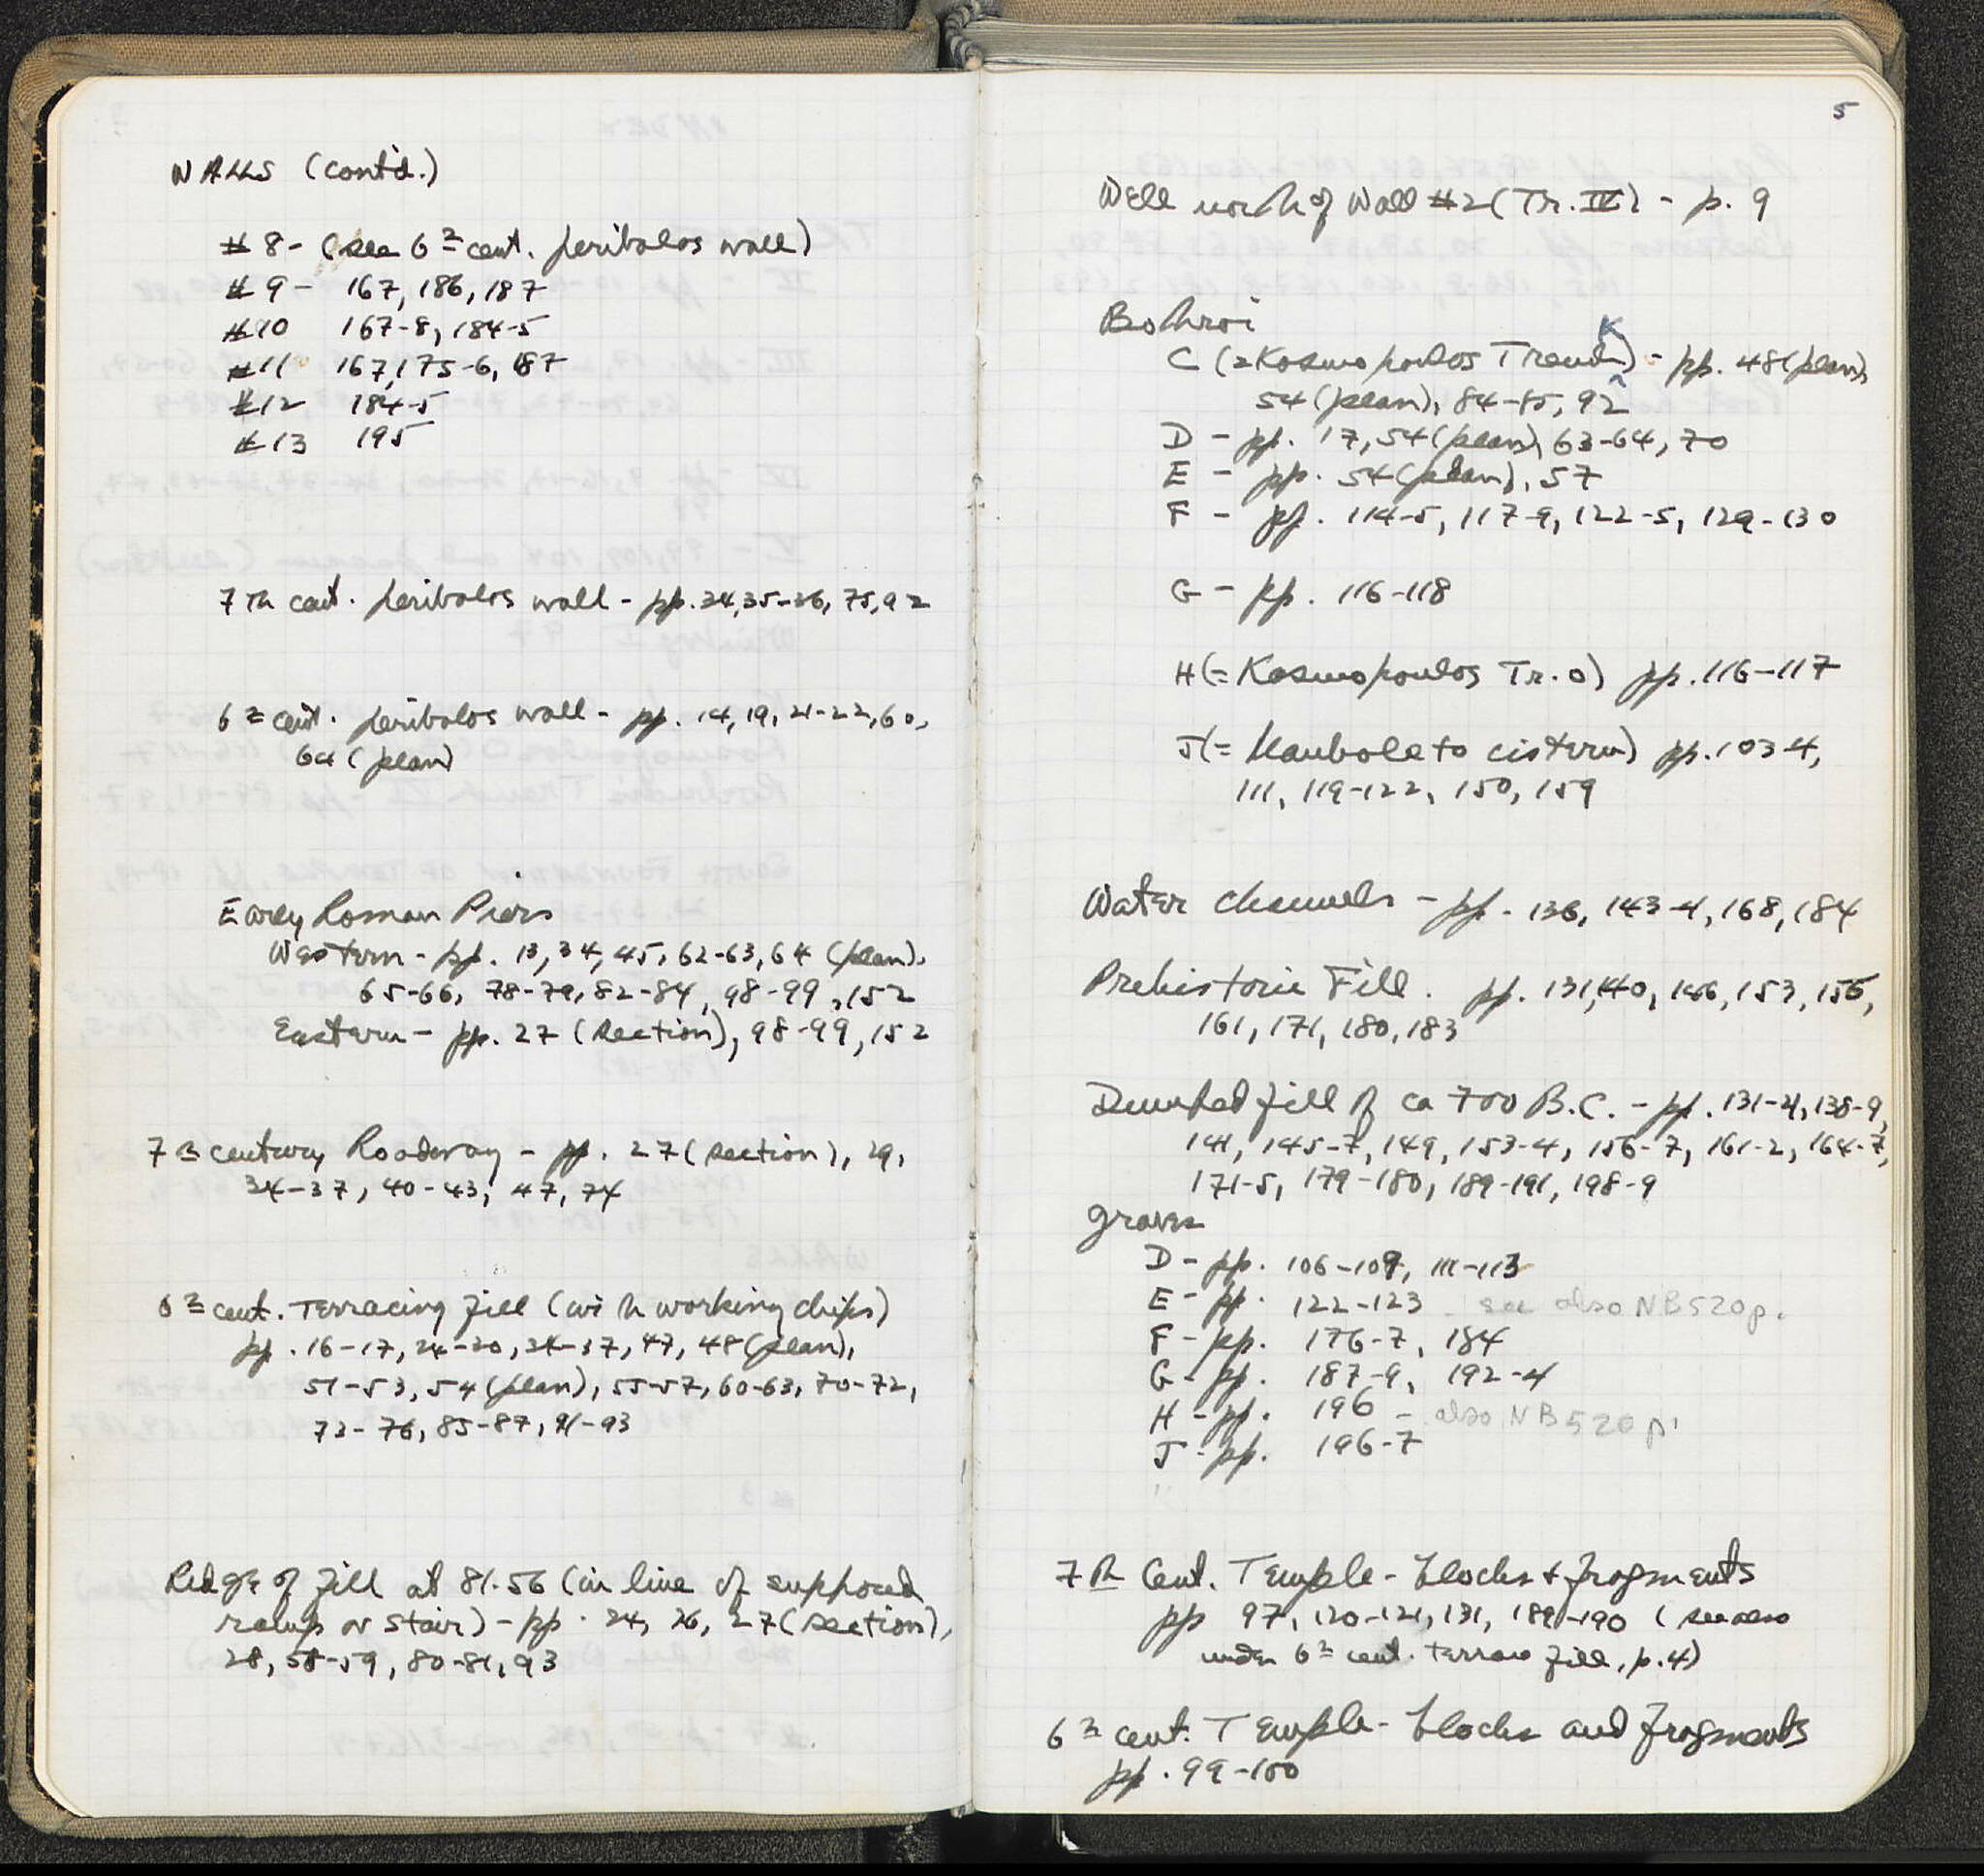 WALLS (cont'd.)
#8 - (see 6th cent. peribolos wall)
#9 - 167, 186, 187
#10 167-8, 184-5
#11 167, 175-6, 187
#12 184-5
#13 195
7th cent. peribolos wall - pp. 34, 35-36, 75, 92
6th cent. peribolos wall - pp. 14, 19, 21-22, 60,
64 (plan)
Early Roman Piers
Western - pp. 13, 34, 45, 62-63, 64 (plan),
65-66, 78-79, 82-84, 98-99, 152
Eastern - pp. 27 (section), 98-99, 152
7th century Roadway - pp. 27 (section), 29,
34-37, 40-43, 47, 74
6th cent. Terracing fill (with working chips)
pp. 16-17, 24-30, 34-37, 47, 48 (plan),
51-53, 54 (plan), 55-57, 60-63, 70-72,
73-76, 85-87, 91-93
Ridge of fill at 81.56 (in line of supposed
ramp or stair) - pp. 24, 26, 27 (section),
28, 58-59, 80-81, 93
5
Well north of Wall #2 (Tr. IV) - p. 9
Bothroi
K
C (=Kosmopoulos Trench) - pp. 48 (plan),
54 (plan), 84-85, 92
D - pp. 17, 54 (plan), 63-64, 70
E - pp. 54 (plan), 57
F - pp. 114-5, 117-9, 122-5, 129-130
G - pp. 116-118
H (= Kosmopoulos Tr. O) pp. 116-117
J (= Manhole to cistern) pp. 103-4,
111, 119-122, 150, 159
Water channels - pp. 136, 143-4, 168, 184
Prehistoric Fill. pp. 131, 140, 146, 153, 156,
161, 171, 180, 183
Dumped fill of ca 700 B.C. - pp. 131-4, 138-9,
141, 145-7, 149, 153-4, 156-7, 161-2, 164-7,
171-5, 179-180, 189-191, 198-9
Graves
D - pp. 106-109, 111-113
E - pp. 122-123 see also NB520 p.
F - pp. 176-7, 184
G - pp. 187-9, 192-4
H - pp. 196 - also NB520 p.
J - pp. 196-7
7th Cent. Temple - blocks + fragments
pp 97, 120-121, 131, 189-190 (see also
under 6th cent. terrace fill, p. 4)
6th cent. Temple - blocks and fragments
pp. 99-100